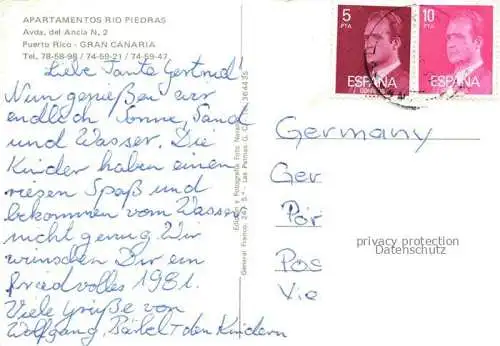 APARTAMENTOS RIO PIEDRAS
Avda. del Ancla N. 2
Puerto Rico - GRAN CANARIA
Tel. 78-58-98 / 74-59-21 / 74-59-47
Liebe Tante Gertrud!
Nun genießen wir
endlich Sonne, Sand
und Wasser. Die
Kinder haben einen
riesen Spaß und
bekommen vom Wasser
nicht genug. Wir
wünschen Dir ein
friedvolles 1981.
Viele Grüße von
Wolfgang, Bärbel + den Kindern
Edición y Fotografía Foto
General Franco, 24
5 PTA
ESPAÑA
CORREOS
10 PTA
ESPAÑA
Germany
Ger
Pör
Pos
Vie
privacy protection
Datenschutz